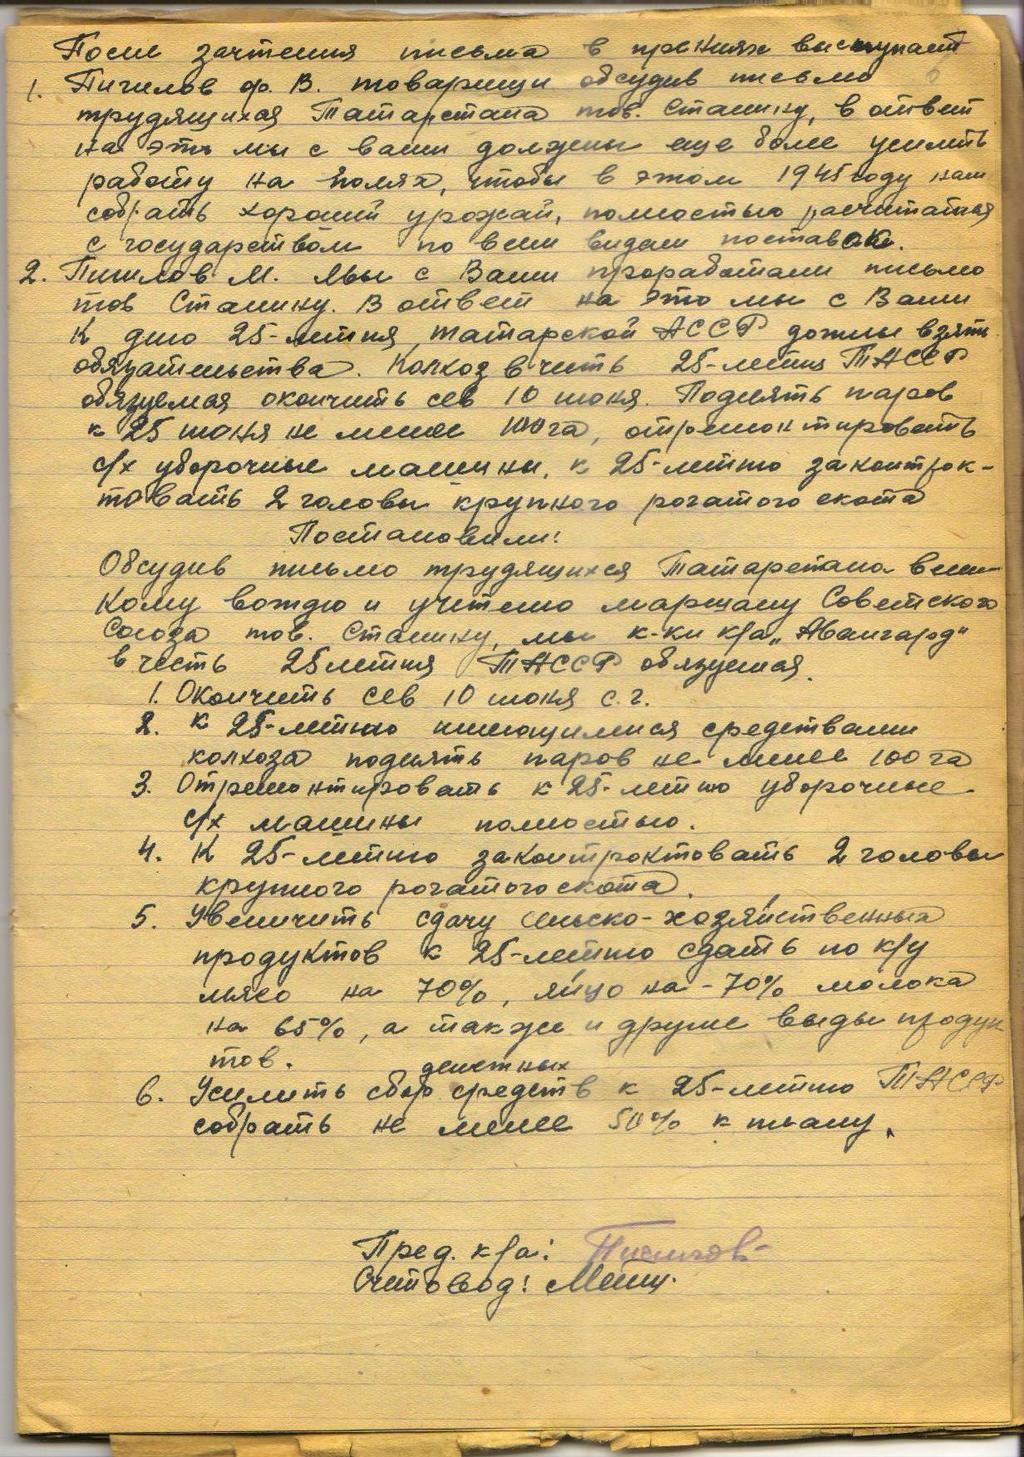 После зачтения письма в прениях выступает
1. Пичилов ф. В. товарищи обсудив письмо
трудящихся Татарстана тов. Сталину, в ответ
на это мы с вами должны еще более усилить
работу на полях, чтобы в этом 1945 году нам
собрать хороший урожай, полностью расчитаться
с государством по всем видам поставок.
2. М. Мы с Вами проработали письмо
тов Сталину. В ответ на это мы с Вами
К дню 25-летия, татарской АССР должны взять
обязательства. Колхоз в честь 25-летия ТАССР
обязуемся окончить сев 10 июня. Поднять паров
к 25 июня не менее 100 га, отремонтировать
с/х уборочные машины, к 25-летию законтрок-
товать 2 головы крупного рогатого скота
Постановили:
Обсудив письмо трудящихся Татарстана вели-
кому вождю и учителю маршалу Советского
Союза тов. Сталину, мы к-ки к/а „Авангард"
в честь 25 летия ТАССР обязуемся.
1. Окончить сев 10 июня с. г.
2. к 25-летию имеющимися средствами
колхоза поднять паров не менее 100 га
3. Отремонтировать к 25-летию уборочные
с/х машины полностью.
4. К 25-летию законтроктовать 2 головы
крупного рогатого скота.
5. Увеличить сдачу сельско-хозяйственных
продуктов к 25-летию сдать по к/у
мясо на 70%, яйцо на - 70% молока
на 65%, а также и другие виды продук
тов.
денежных
6. Усилить сбор средств к 25-летию ТАССР
собрать не менее 50% к плану.
Пред. к/а:
Счетовод: